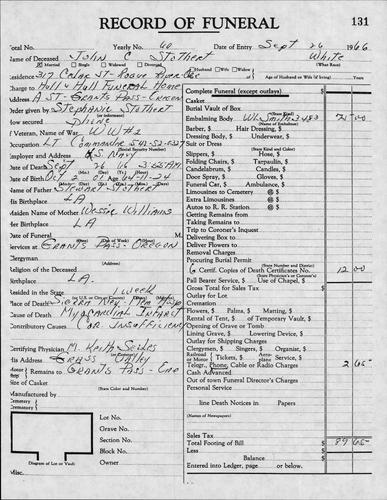 RECORD OF FUNERAL 131
Total No. Yearly No. 60 Date of Entry Sept 26 1966
Name of Deceased John C Stothert White
Married Single Widowed Divorced (What Race)
Residence 317 Cedar St- Rogue River Ore Husband Wife Widow Age of Husband or Wife (if living) Years
Charge to Hull & Hull Funeral Home
Address A St- Grants Pass- Oregon
Order given by Stephanie Stothert
How secured Phone
If Veteran, Name of War WW#2
Occupation LT Commander
Employer and Address U.S. Navy
Date of Death Sept 26 3:25 AM
Date of Birth Oct 2
Name of Father Stewart Stothert
His Birthplace LA
Maiden Name of Mother Williams
Her Birthplace LA
Date of Funeral M.
Services at Grants Pass- Oregon
Clergyman
(Address)
Religion of the Deceased
Birthplace LA
Resided in the State 1 week
Place of Death Sierra Nev. Mem Hosp
Cause of Death Myocardial Infarct
Contributory Causes Car Insufficiency
Certifying Physician M. Keith
His Address Grass Valley
Motor Remains to Grants Pass- Ore
Size of Casket
(State Color and Number)
Manufactured by
Cemetery
Crematory
Lot No.
Grave No.
Section No.
Block No.
Owner
Diagram of Lot or Vault
Misc.
Complete Funeral (except outlays) $
Casket
Burial Vault of Box
(State Kind)
Embalming Body 75 00
(Name of Embalmer)
Barber, $ Hair Dressing, $
Dressing Body, $ Underwear, $
Suit or Dress
(State Kind and Color)
Slippers, $ Hose, $
Folding Chairs, $ Tarpaulin, $
Candelabrum, $ Candles, $
Door Spray, $ Gloves, $
Funeral Car, $ Ambulance, $
Limousines to Cemetery @ $
Extra Limousines @ $
Autos to R. R. Station @ $
Getting Remains from
Taking Remains to
Trip to Coroner's Inquest
Delivering Box to
Deliver Flowers to
Removal Charges
Procuring Burial Permit
(State Number and District)
6 Certif. Copies of Death Certificates No. 12 00
Pall Bearer Service, $ Use of Chapel, $
Gross Total for Sales Tax $
Outlay for Lot
Cremation
Flowers, $ Palms, $ Matting, $
Rental of Tent, $ of Temporary Vault, $
Opening of Grave or Tomb
Lining Grave, $ Lowering Device, $
Outlay for Shipping Charges
Clergymen, $ Singers, $ Organist, $
Railroad or Motor Tickets, $ Aeroplane Service, $
Telegr., Phone, Cable or Radio Charges 2 65
Cash Advanced
Out of town Funeral Director's Charges
Personal Service
line Death Notices in Papers
(Names of Newspapers)
Sales Tax
Total Footing of Bill $ 89 65
Less $
Balance $
Entered into Ledger, page or below.